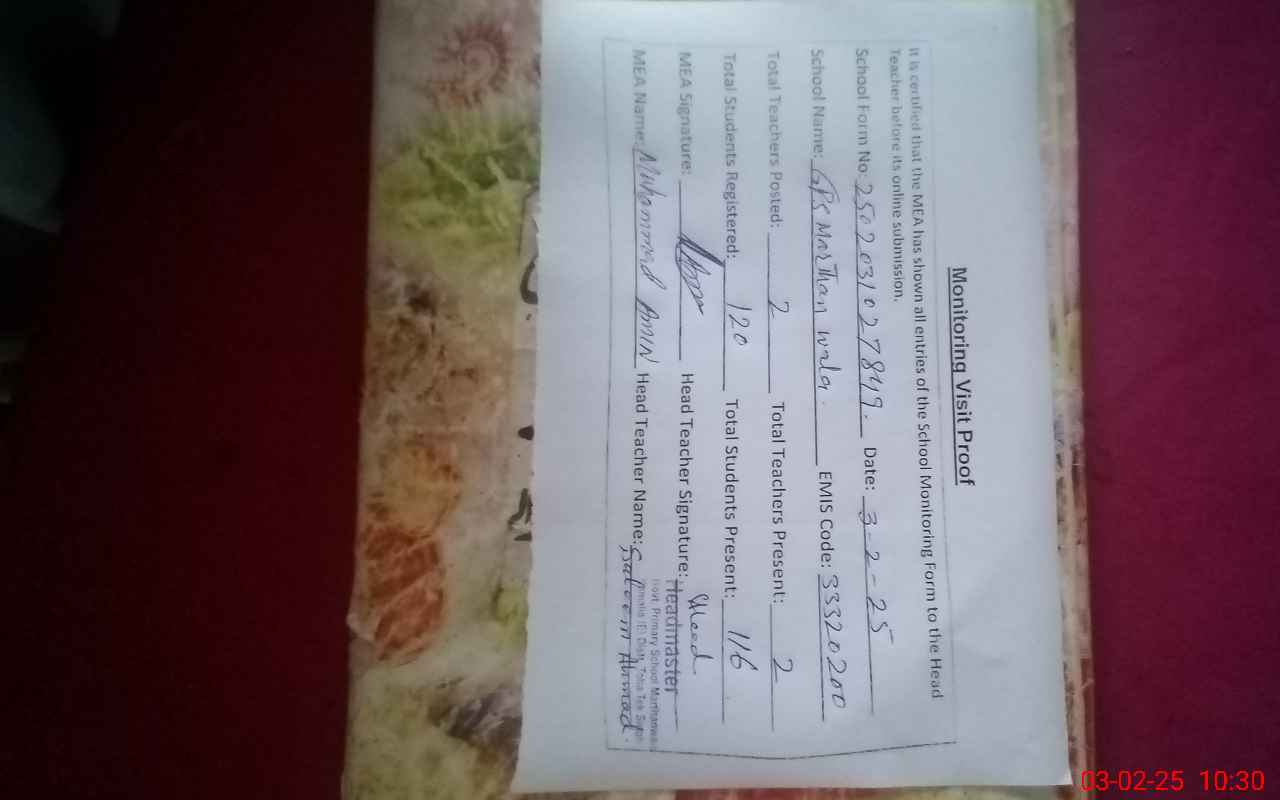 Monitoring Visit Proof
It is certified that the MEA has shown all entries of the School Monitoring Form to the Head
Teacher before its online submission.
School Form No: 2502031027849. Date: 3-2-25
School Name: GPS Marthan wala. EMIS Code: 33320200
Total Teachers Posted: 2 Total Teachers Present: 2
Total Students Registered: 120 Total Students Present: 116
MEA Signature: Head Teacher Signature:
Headmaster
Govt. Primary School Marthanwala
(E) Distt. Toba Tek Singh
MEA Name: Muhammad AMIN Head Teacher Name: Saleem Ahmad.
03-02-25 10:30